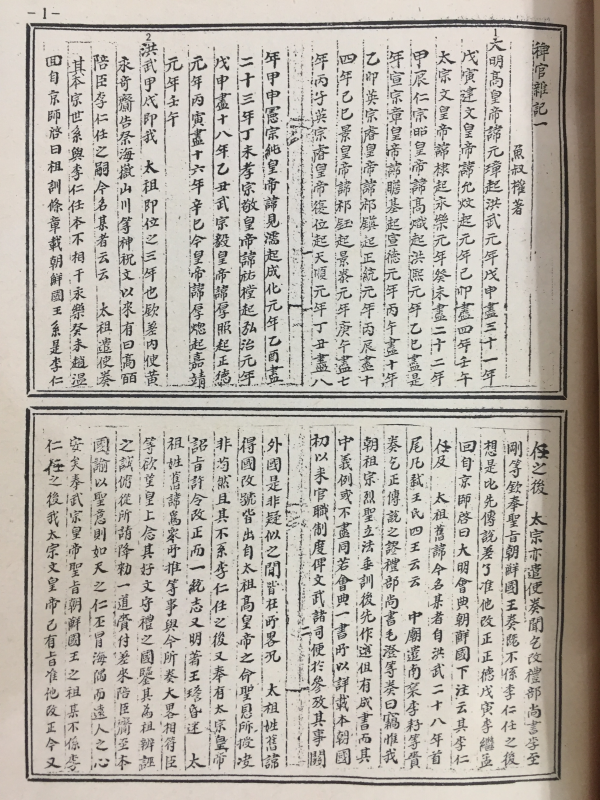 -1-
稗官雜記一
魚叔權著
1
大明高皇帝諱元璋起洪武元年戊申盡三十一年
戊寅建文皇帝諱允炆起元年己卯盡四年壬午
太宗文皇帝諱棣起永樂元年癸未盡二十二年
甲辰仁宗昭皇帝諱高熾起洪熙元年乙巳盡是
年宣宗章皇帝諱瞻基起宣德元年丙午盡十年
乙卯英宗睿皇帝諱祁鎮起正統元年丙辰盡十
四年己巳景皇帝諱祁鈺起景泰元年庚午盡七
年丙子英宗睿皇帝復位起天順元年丁丑盡八
年甲申憲宗純皇帝諱見濡起成化元年乙酉盡
二十三年丁未孝宗敬皇帝諱祐樘起弘治元年
戊申盡十八年乙丑武宗毅皇帝諱厚照起正德
元年丙寅盡十六年辛巳今皇帝諱厚熜起嘉靖
元年壬午
2
洪武甲戌即我 太祖即位之三年也欽差內使黃
永奇齎告祭海嶽山川等神祝文以來有曰高麗
陪臣李仁任之嗣今名某者云云 太祖遣使奏
其本宗世系與李仁任本不相干永樂癸未趙溫
回自京師啓曰祖訓條章載朝鮮國王系是李仁
任之後 太宗亦遣使奏聞乞改禮部尚書李至
剛等欽奉聖旨朝鮮國王奏既不係李仁任之後
想是比先傳說差了准他改正正德戊寅李繼孟
回自京師啓曰大明會典朝鮮國下注云其李仁
任及 太祖舊諱今名某者自洪武二十八年首
尾凡弑王氏四王云云 中廟遣南袞李耔等賫
奏乞正傳說之謬禮部尚書毛澄等奏曰竊惟我
朝祖宗烈聖立法垂訓後先作述俱有成書而其
中義例或不盡同若會典一書所以詳載本朝國
初以來官職制度俾文武諸司便於參攷其事關
外國是非疑似之間皆在所畧況 太祖姓舊諱
得國改號皆出自太祖高皇帝之命聖恩所授凌
非苟然且其不系李仁任之後又奉有太宗皇帝
詔旨許令改正而一統志又明著王瑤昏迷 太
祖姓舊諱爲衆所推等事與今所奏大畧相符臣
等欲望皇上念其好文守禮之國鑒其爲祖辨誣
之誠俯從所請降勑一道賫付差來陪臣齎至本
國諭以聖意則如天之仁丕冒海隅而遠人之心
安矣奉武宗皇帝聖旨朝鮮國王之祖某不係李
仁任之後我太宗文皇帝已有旨准他改正今又